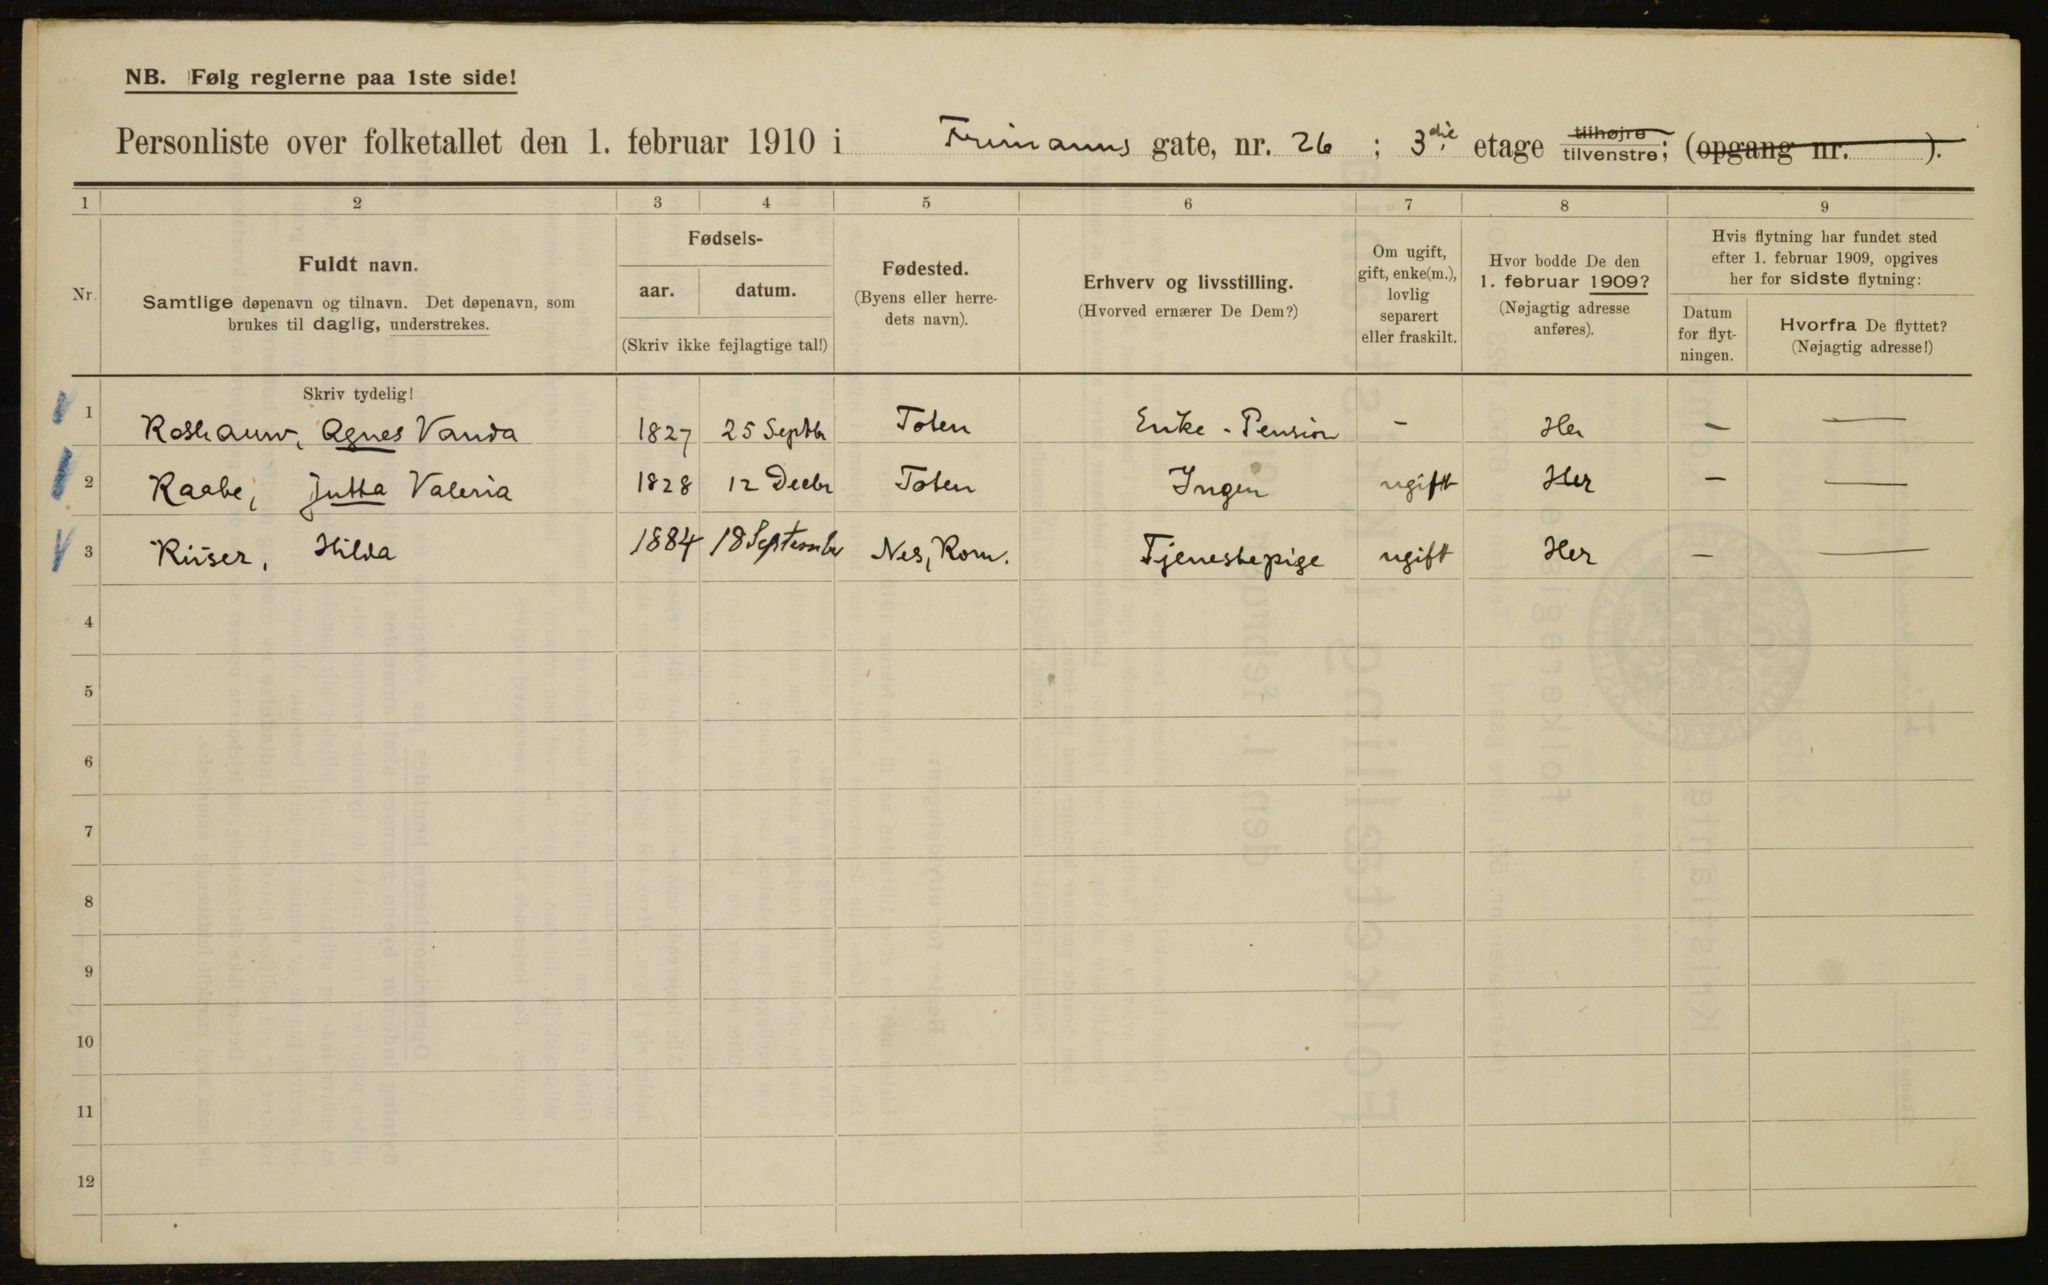 NB. Følg reglerne paa 1ste side!
Personliste over folketallet den 1. februar 1910 i Frimanns gate, nr. 26 ; 3die etage tilhøjre tilvenstre; (opgang nr. ).
1 2 3 4 5 6 7 8 9
Nr.
Fuldt navn.
Samtlige døpenavn og tilnavn. Det døpenavn, som
brukes til daglig, understrekes.
Fødsels-
aar. datum.
(Skriv ikke fejlagtige tal!)
Fødested.
(Byens eller herre-
dets navn).
Erhverv og livsstilling.
(Hvorved ernærer De Dem?)
Om ugift,
gift, enke(m.),
lovlig
separert
eller fraskilt.
Hvor bodde De den
1. februar 1909?
(Nøjagtig adresse
anføres).
Hvis flytning har fundet sted
efter 1. februar 1909, opgives
her for sidste flytning:
Datum
for flyt-
ningen.
Hvorfra De flyttet?
(Nøjagtig adresse!)
Skriv tydelig!
1 Roshauw, Agnes Vanda 1827 25 Septbr Toten Enke - Pension - Her - —
2 Raabe, Jutta Valeria 1828 12 Decbr Toten Ingen ugift Her - —
3 Riiser, Hilda 1884 18 September Nes, Rom. Tjenestepige ugift Her - —
4
5
6
7
8
9
10
11
12